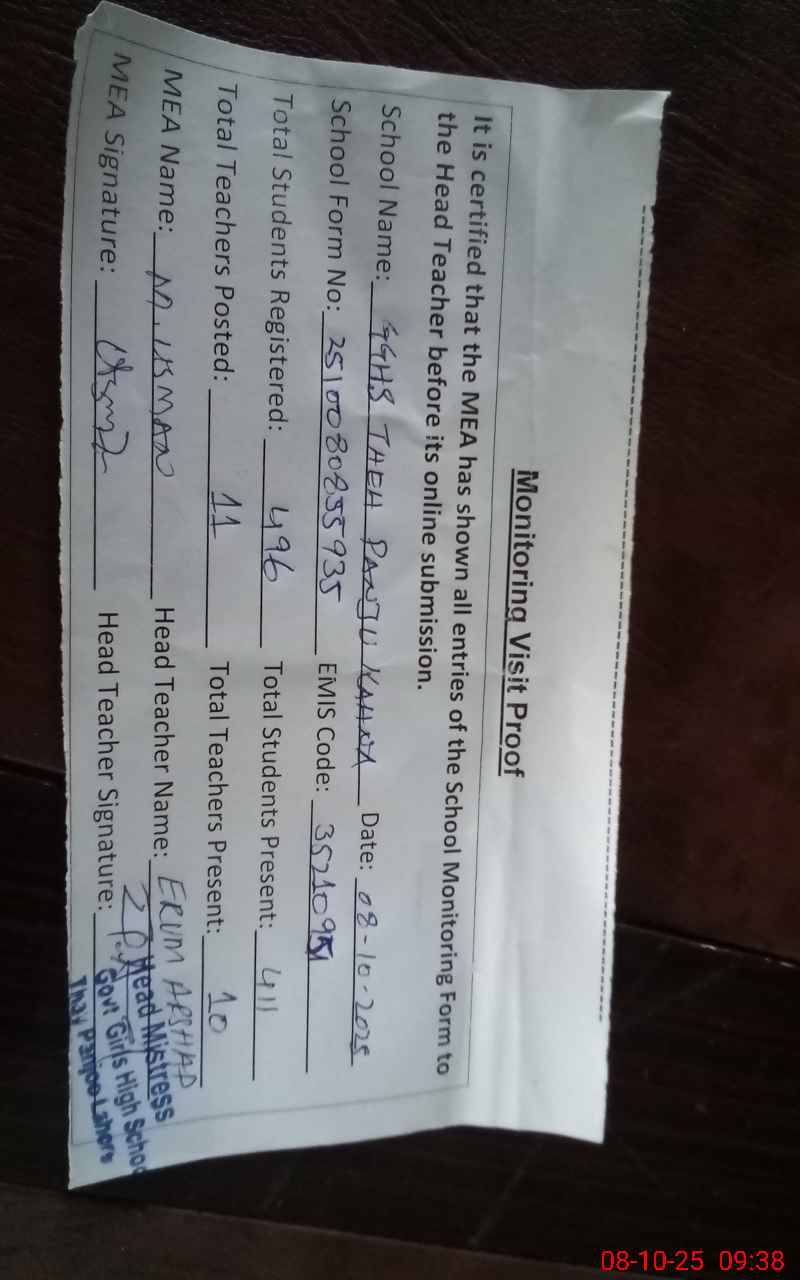 Monitoring Visit Proof
It is certified that the MEA has shown all entries of the School Monitoring Form to
the Head Teacher before its online submission.
School Name: GGHS THEH PANJU KAHNA Date: 08-10-2025
School Form No: 2510080855935 EMIS Code: 35210951
Total Students Registered: 496 Total Students Present: 411
Total Teachers Posted: 11 Total Teachers Present: 10
MEA Name: M. USMAN Head Teacher Name: ERUM ARSHAD
MEA Signature: Usman Head Teacher Signature:
Head Mistress
Govt Girls High School
Thay Panjoo Lahore
08-10-25 09:38